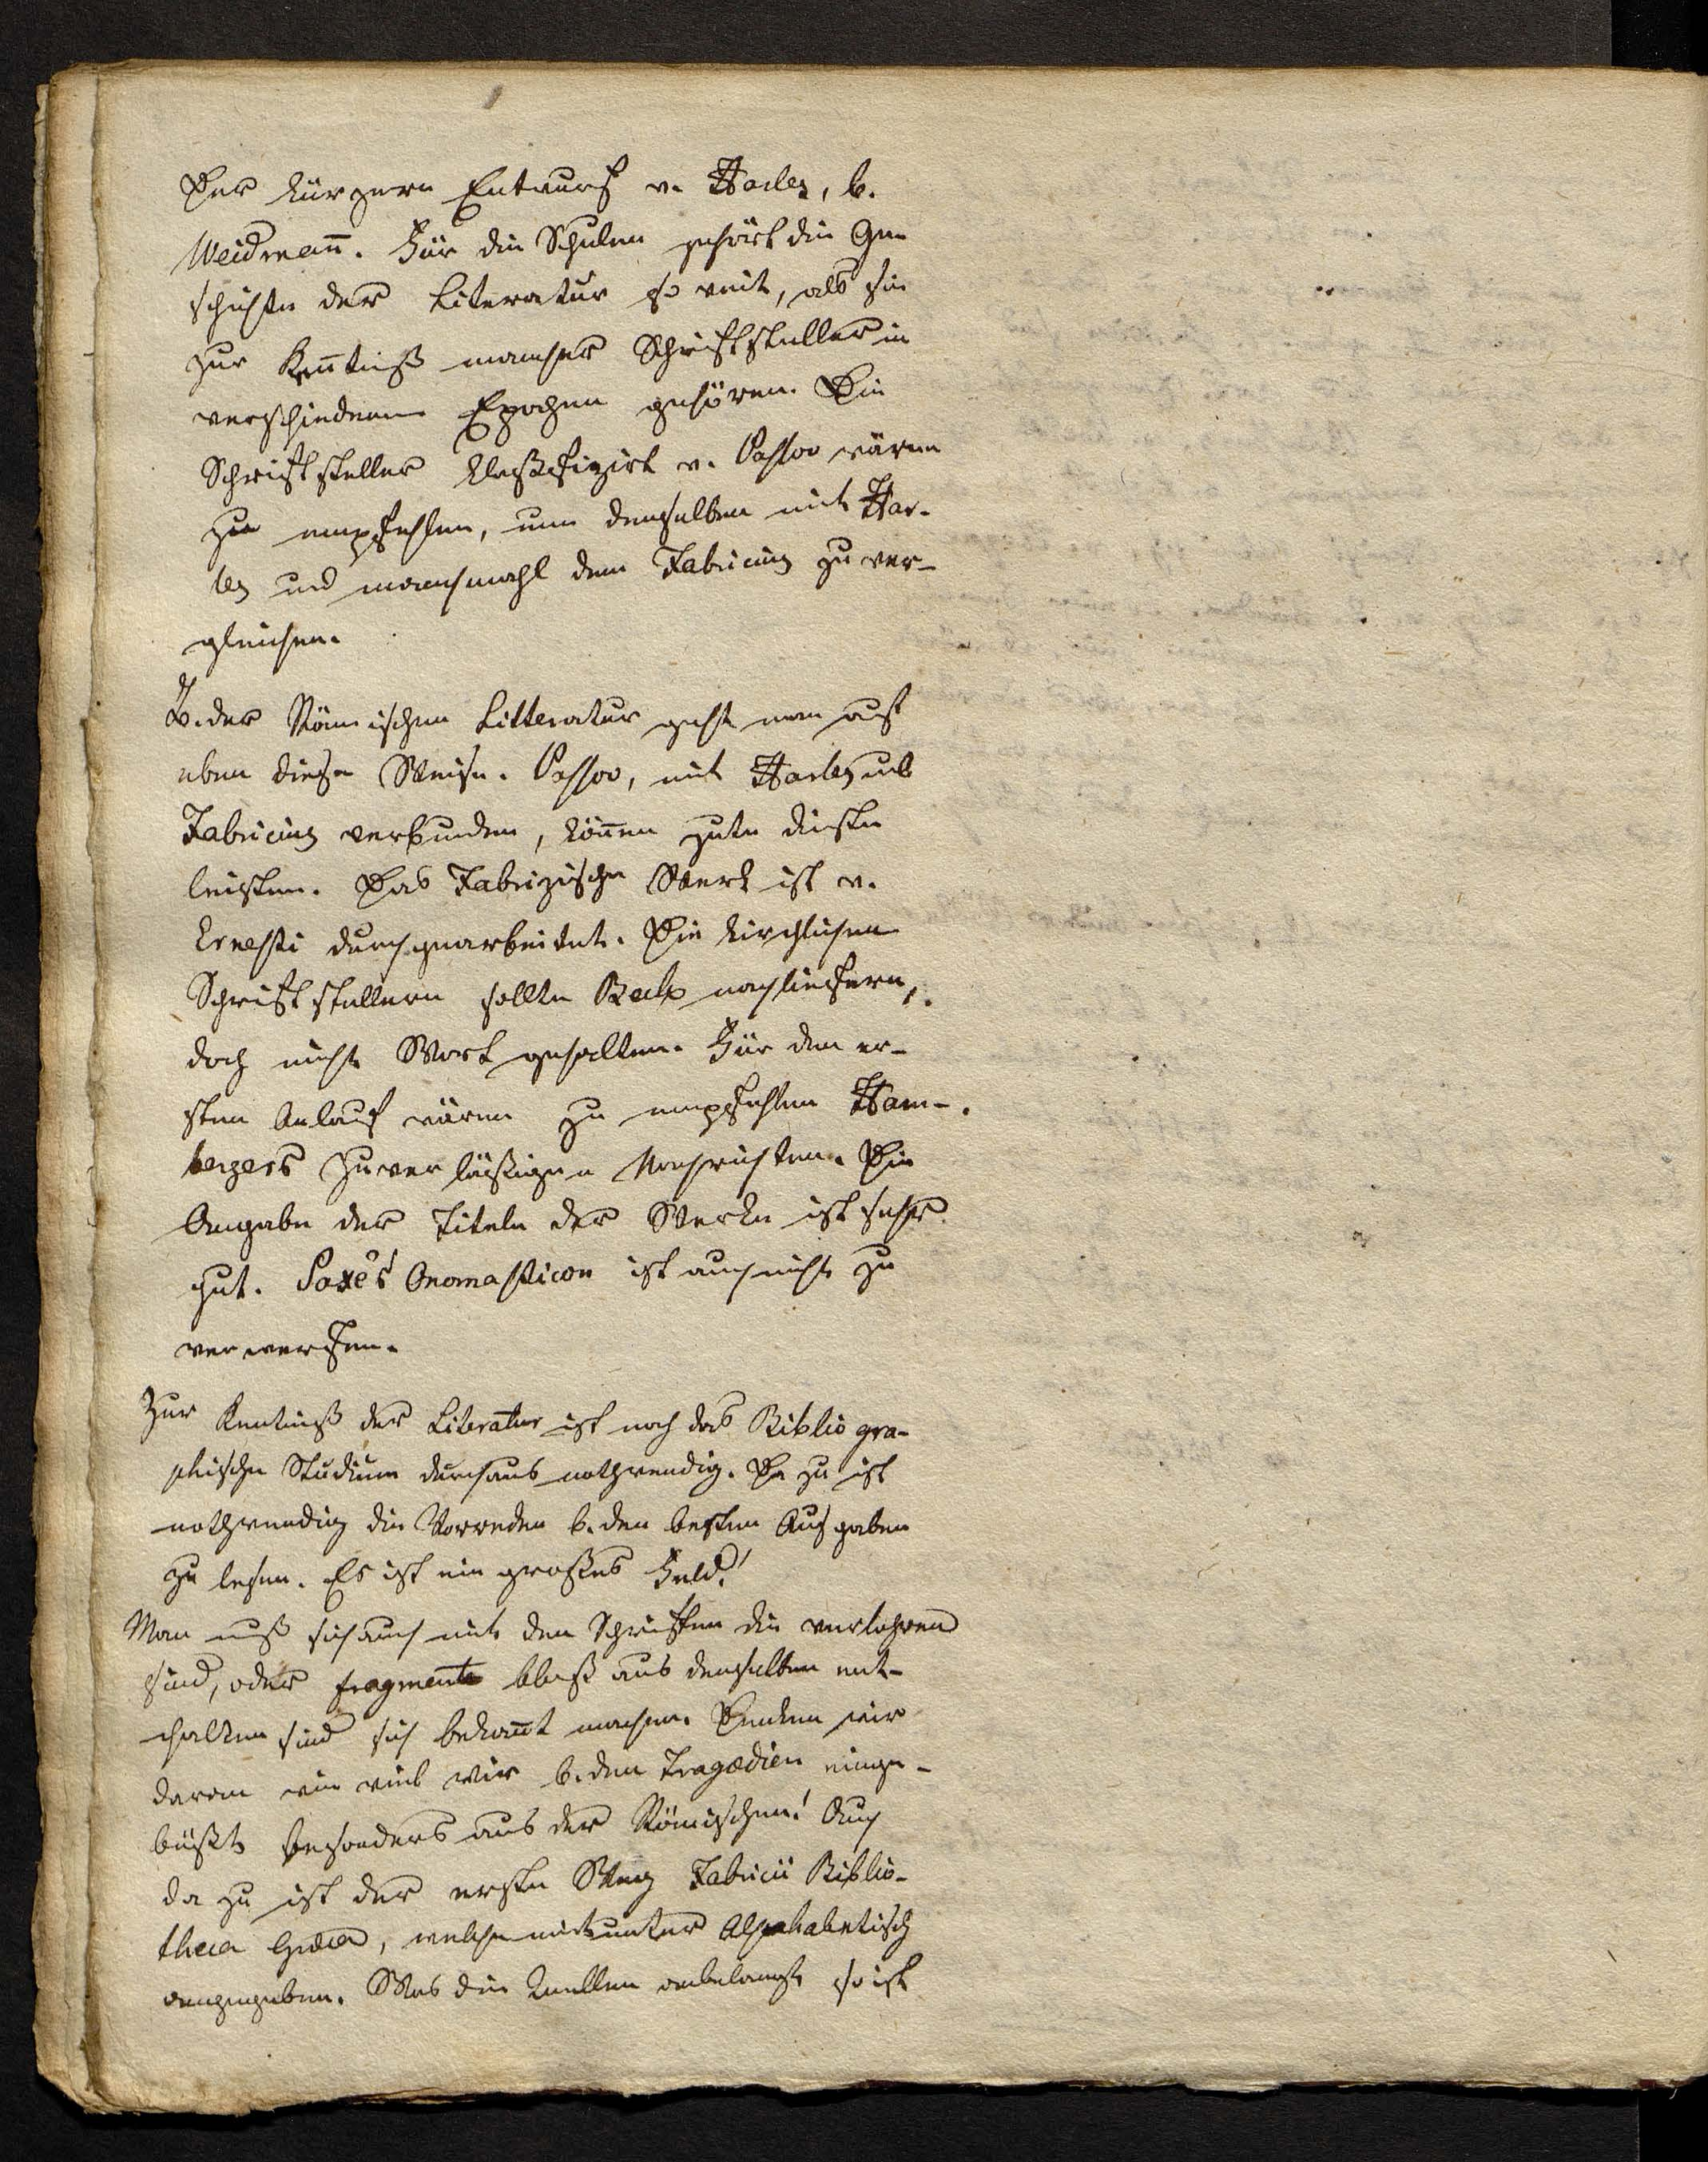 Der kürzern Entwurf v. Harles, b.
Weidmañ. Für die Schulen gehört die Ge¬
schichte der Literatur so weit, als sie
zur Keñtniß mancher Schriftsteller in
verschiedenen Epochen gehören. Die
Schriftsteller klaßifizirt v. Passow wären
zu empfehlen, um denselben mit Har-
les und manchmahl dem Fabricius zu ver-
gleichen.
B. der Römischen Litteratur geht man auf
eben diese Weise. Passow, mit Harles und
Fabricius verbunden, köñen gute dienste
leisten. Das Fabrizische Werk ist v.
Ernesti durchgearbeitet. Die kirchlichen
Schriftstellern sollte Beck nachliefern,
doch nicht Wort gehalten. Für den er-
sten Anlauf wären zu empfehlen Ham-
bergers zuverläßigen Nachrichten. Die
Angabe der Titeln der Werke ist sehr
gut. Saxe's Onomasticon ist auch nicht zu
verwerfen.
Zur Kentniß der Literatur ist noch das Bibliogra-
phische Studium durchaus nothwendig. Da zu ist
nothwendig die Vorreden b. den besten Ausgaben
zu lesen. Es ist ein großes Feld!
Man muß sich auch mit den Schriften die verlohren
sind, oder fragmente bloß aus denselben ent-
halten sind sich bekañt machen. Denken wir
daran wie viel wir b. den Tragœdien einge-
büßt besonders aus der Römischen! Auch
da zu ist der erste Weg Fabricii Biblio-
theca Græca, welche mitunter Alphabetisch
angegeben. Was die Quellen anbelangt so ist